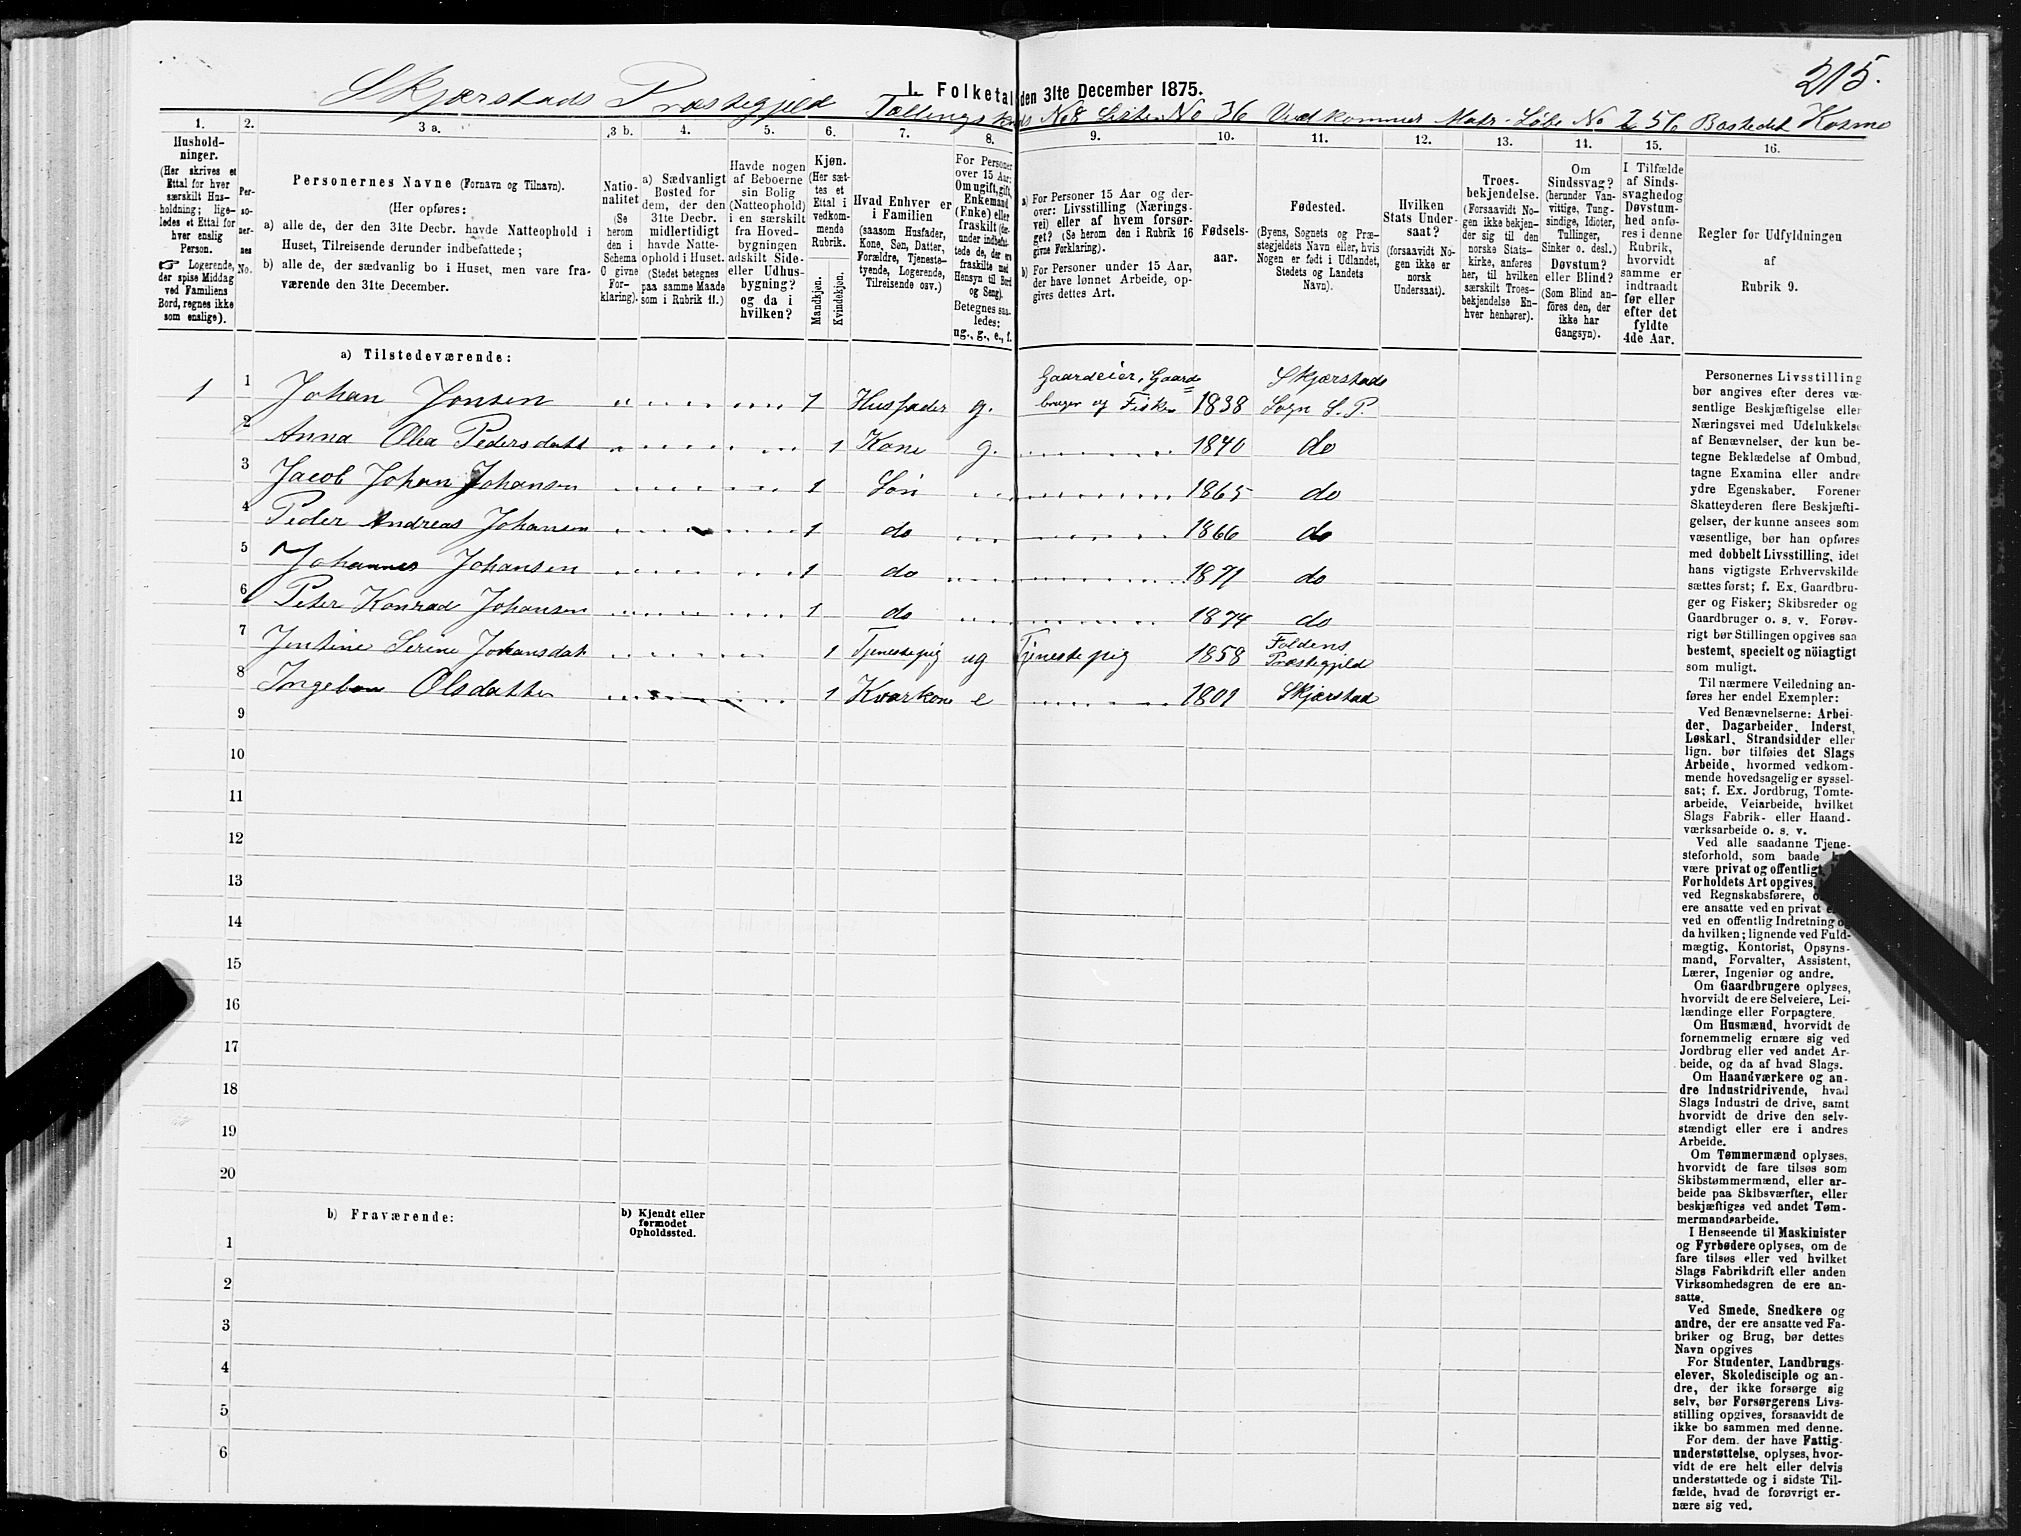 215.
I. Folketal den 31te December 1875.
Skjærstads Præstegjeld Tællingskreds No 8 Liste No 36 Vedkommer Matr. Løbe No 256 Bostedet Kosmo
1.
Husholdninger.
(Her skrives et
Ettal for hver
særskilt Husholdning;
ligeledes et Ettal for
hver enslig
Person.
☞ Logerende,
der spise Middag
ved Familiens
Bord, regnes ikke
som enslige).
2.
Personernes
No.
3 a.
Personernes Navne (Fornavn og Tilnavn).
(Her opføres:
a) alle de, der den 31te Decbr. havde Natteophold i
Huset, Tilreisende derunder indbefattede;
b) alle de, der sædvanlig bo i Huset, men vare fra-
værende den 31te December.
3 b.
Nationalitet
(Se
herom
den i
Schema
O givne
Forklaring).
4.
a) Sædvanligt
Bosted for
dem, der den
31te Decbr.
midlertidigt
havde Natteophold
i Huset.
(Stedet betegnes
paa samme Maade
som i Rubrik 11.)
5.
Havde nogen
af Beboerne
sin Bolig
(Natteophold)
i en særskilt
fra Hovedbygningen
adskilt Side-
eller Udhusbygning?
og da i
hvilken?
6.
Kjøn.
(Her sættes
et
Ettal i
vedkommende
Rubrik.
Mandkjøn.
Kvindekjøn.
7.
Hvad Enhver er
i Familien
(saasom Husfader,
Kone, Søn, Datter,
Forældre, Tjenestetyende,
Logerende,
Tilreisende osv.)
8.
For Personer
over 15 Aar:
Om ugift, gift,
Enkemand
(Enke) eller
fraskilt (derunder
indbefattede
de, der ere
fraskilte med
Hensyn til Bord
og Seng).
Betegnes saaledes:
ug., g., e., f.
9.
a) For Personer 15 Aar og derover:
Livsstilling (Næringsvei)
eller af hvem forsørget?
(Se herom den i Rubrik 16
givne Forklaring).
b) For Personer under 15 Aar,
der have lønnet Arbeide, opgives
dettes Art.
10.
Fødselsaar.
11.
Fødested.
(Byens, Sognets og Præstegjeldets
Navn eller, hvis
Nogen er født i Udlandet,
Stedets og Landets
Navn).
12.
Hvilken
Stats Undersaat?
(forsaavidt Nogen
ikke er
norsk
Undersaat).
13.
Troesbekjendelse.
(Forsaavidt Nogen
ikke bekjender
sig til den
norske Statskirke,
anføres
her, til hvilken
særskilt Troesbekjendelse
Enhver
henhører).
14.
Om
Sindssvag?
(herunder Vanvittige,
Tungsindige,
Idioter,
Tullinger,
Sinker o. desl.)
Døvstum?
eller Blind?
(Som Blind anføres
den, der
ikke har
Gangsyn).
15.
I Tilfælde
af Sindssvaghed
og
Døvstumhed
anføres
i denne
Rubrik,
hvorvidt
samme er
indtraadt
før eller
efter det
fyldte
4de Aar.
16.
Regler for Udfyldningen
af
Rubrik 9.
a) Tilstedeværende:
1 1 Johan Jonsen 1 Husfader g. Gaardeier, Gaardbruger og Fisker 1838 Skjærstads Sogn S. P.
2 Anna Olea Pedersdatt 1 Kone g. 1840 do
3 Jacob Johan Johansen 1 Søn 1865 do
4 Peder Andreas Johansen 1 do 1866 do
5 Johannes Johansen 1 do 1871 do
6 Peter Konrad Johansen 1 do 1874 do
7 Jentine Serine Johansdat 1 Tjenestepig ug Tjenestepig 1858 Foldens Præstegjeld
8 Ingebor Olsdatter 1 Kaarkone e 1801 Skjærstad
9
10
11
12
13
14
15
16
17
18
19
20
b) Fraværende:
b) Kjendt eller
formodet
Opholdssted.
1
2
3
4
5
6
Personernes Livsstilling
bør angives efter deres væsentlige
Beskjæftigelse eller
Næringsvei med Udelukkelse
af Benævnelser, der kun betegne
Beklædelse af Ombud,
tagne Examina eller andre
ydre Egenskaber. Forener
Skatteyderen flere Beskjæftigelser,
der kunne ansees som
væsentlige, bør han opføres
med dobbelt Livsstilling, idet
hans vigtigste Erhvervskilde
sættes først; f. Ex. Gaardbruger
og Fisker; Skibsreder og
Gaardbruger o. s. v. Forøvrigt
bør Stillingen opgives saa
bestemt, specielt og nöiagtigt
som muligt.
Til nærmere Veiledning anføres
her endel Exempler:
Ved Benævnelserne: Arbeider,
Dagarbeider, Inderst,
Løskarl, Strandsidder eller
lign. bør tilføies det Slags
Arbeide, hvormed vedkommende
hovedsagelig er sysselsat;
f. Ex. Jordbrug, Tomtearbeide,
Veiarbeide, hvilket
Slags Fabrik- eller Haandværksarbeide
o. s. v.
Ved alle saadanne Tjenesteforhold,
som baade
være privat og offentligt,
Forholdets Art opgives,
ved Regnskabsførere,
ere ansatte ved en privat
ved en offentlig Indretning
da hvilken; lignende ved Fuldmægtig,
Kontorist, Opsynsmand,
Forvalter, Assistent,
Lærer, Ingeniør og andre.
Om Gaardbrugere oplyses,
hvorvidt de ere Selveiere, Leilændinge
eller Forpagtere.
Om Husmænd, hvorvidt de
fornemmelig ernære sig ved
Jordbrug eller ved andet Arbeide,
og da af hvad Slags.
Om Haandværkere og andre
Industridrivende, hvad
Slags Industri de drive, samt
hvorvidt de drive den selvstændigt
eller ere i andres
Arbeide.
Om Tømmermænd oplyses,
hvorvidt de fare tilsøs som
Skibstømmermænd, eller arbeide
paa Skibsværfter, eller
beskjæftiges ved andet Tømmermandsarbeide.
I Henseende til Maskinister
og Fyrbødere oplyses, om de
fare tilsøs eller ved hvilket
Slags Fabrikdrift eller anden
Virksomhedsgren de ere ansatte.
Ved Smede, Snedkere og
andre, der ere ansatte ved Fabriker
og Brug, bør dettes
Navn opgives
For Studenter, Landbrugselever,
Skoledisciple og andre,
der ikke forsørge sig
selv, bør Forsørgerens Livsstilling
opgives, forsaavidt de
ikke bo sammen med denne.
For dem, der have Fattigunderstøttelse,
oplyses, hvorvidt
de ere helt eller delvis
understøttede og i sidste Tilfælde,
hvad de forøvrigt ernære
sig ved.